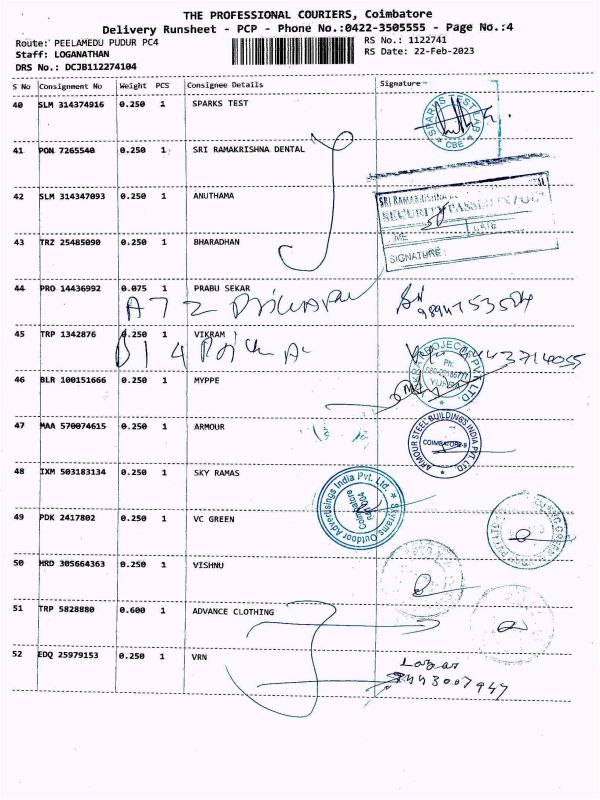 THE PROFESSIONAL COURIERS, Coimbatore
Delivery Runsheet - PCP - Phone No.:0422-3505555 - Page No.:4
Route: PEELAMEDU PUDUR PC4
RS No.: 1122741
Staff: LOGANATHAN
RS Date: 22-Feb-2023
DRS No.: DCJB112274104
S No Consignment No Weight PCS Consignee Details Signature
40 SLM 314374916 0.250 1 SPARKS TEST
SPARKS TEST LAB
CBE
41 PON 7265540 0.250 1 SRI RAMAKRISHNA DENTAL
42 SLM 314347093 0.250 1 ANUTHAMA
SRI RAMAKRISHNA
SECURITY PASSED IN / OUT
DATE
SIGNATURE:
43 TRZ 25485090 0.250 1 BHARADHAN
44 PRO 14436992 0.075 1 PRABU SEKAR
A 7 2
45 TRP 1342876 0.250 1 VIKRAM
B 1 4
46 BLR 100151666 0.250 1 MYPPE
PROJECTS PVT LTD
Ph:
47 MAA 570074615 0.250 1 ARMOUR
ARMOUR STEEL BUILDINGS INDIA PVT LTD
COIMBATORE-9
48 IXM 503183134 0.250 1 SKY RAMAS
Skyrams Outdoor Advertisings India Pvt. Ltd.
Coimbatore
641 004
49 PDK 2417802 0.250 1 VC GREEN
50 HRD 305664363 0.250 1 VISHNU
51 TRP 5828880 0.600 1 ADVANCE CLOTHING
52 EDQ 25979153 0.250 1 VRN